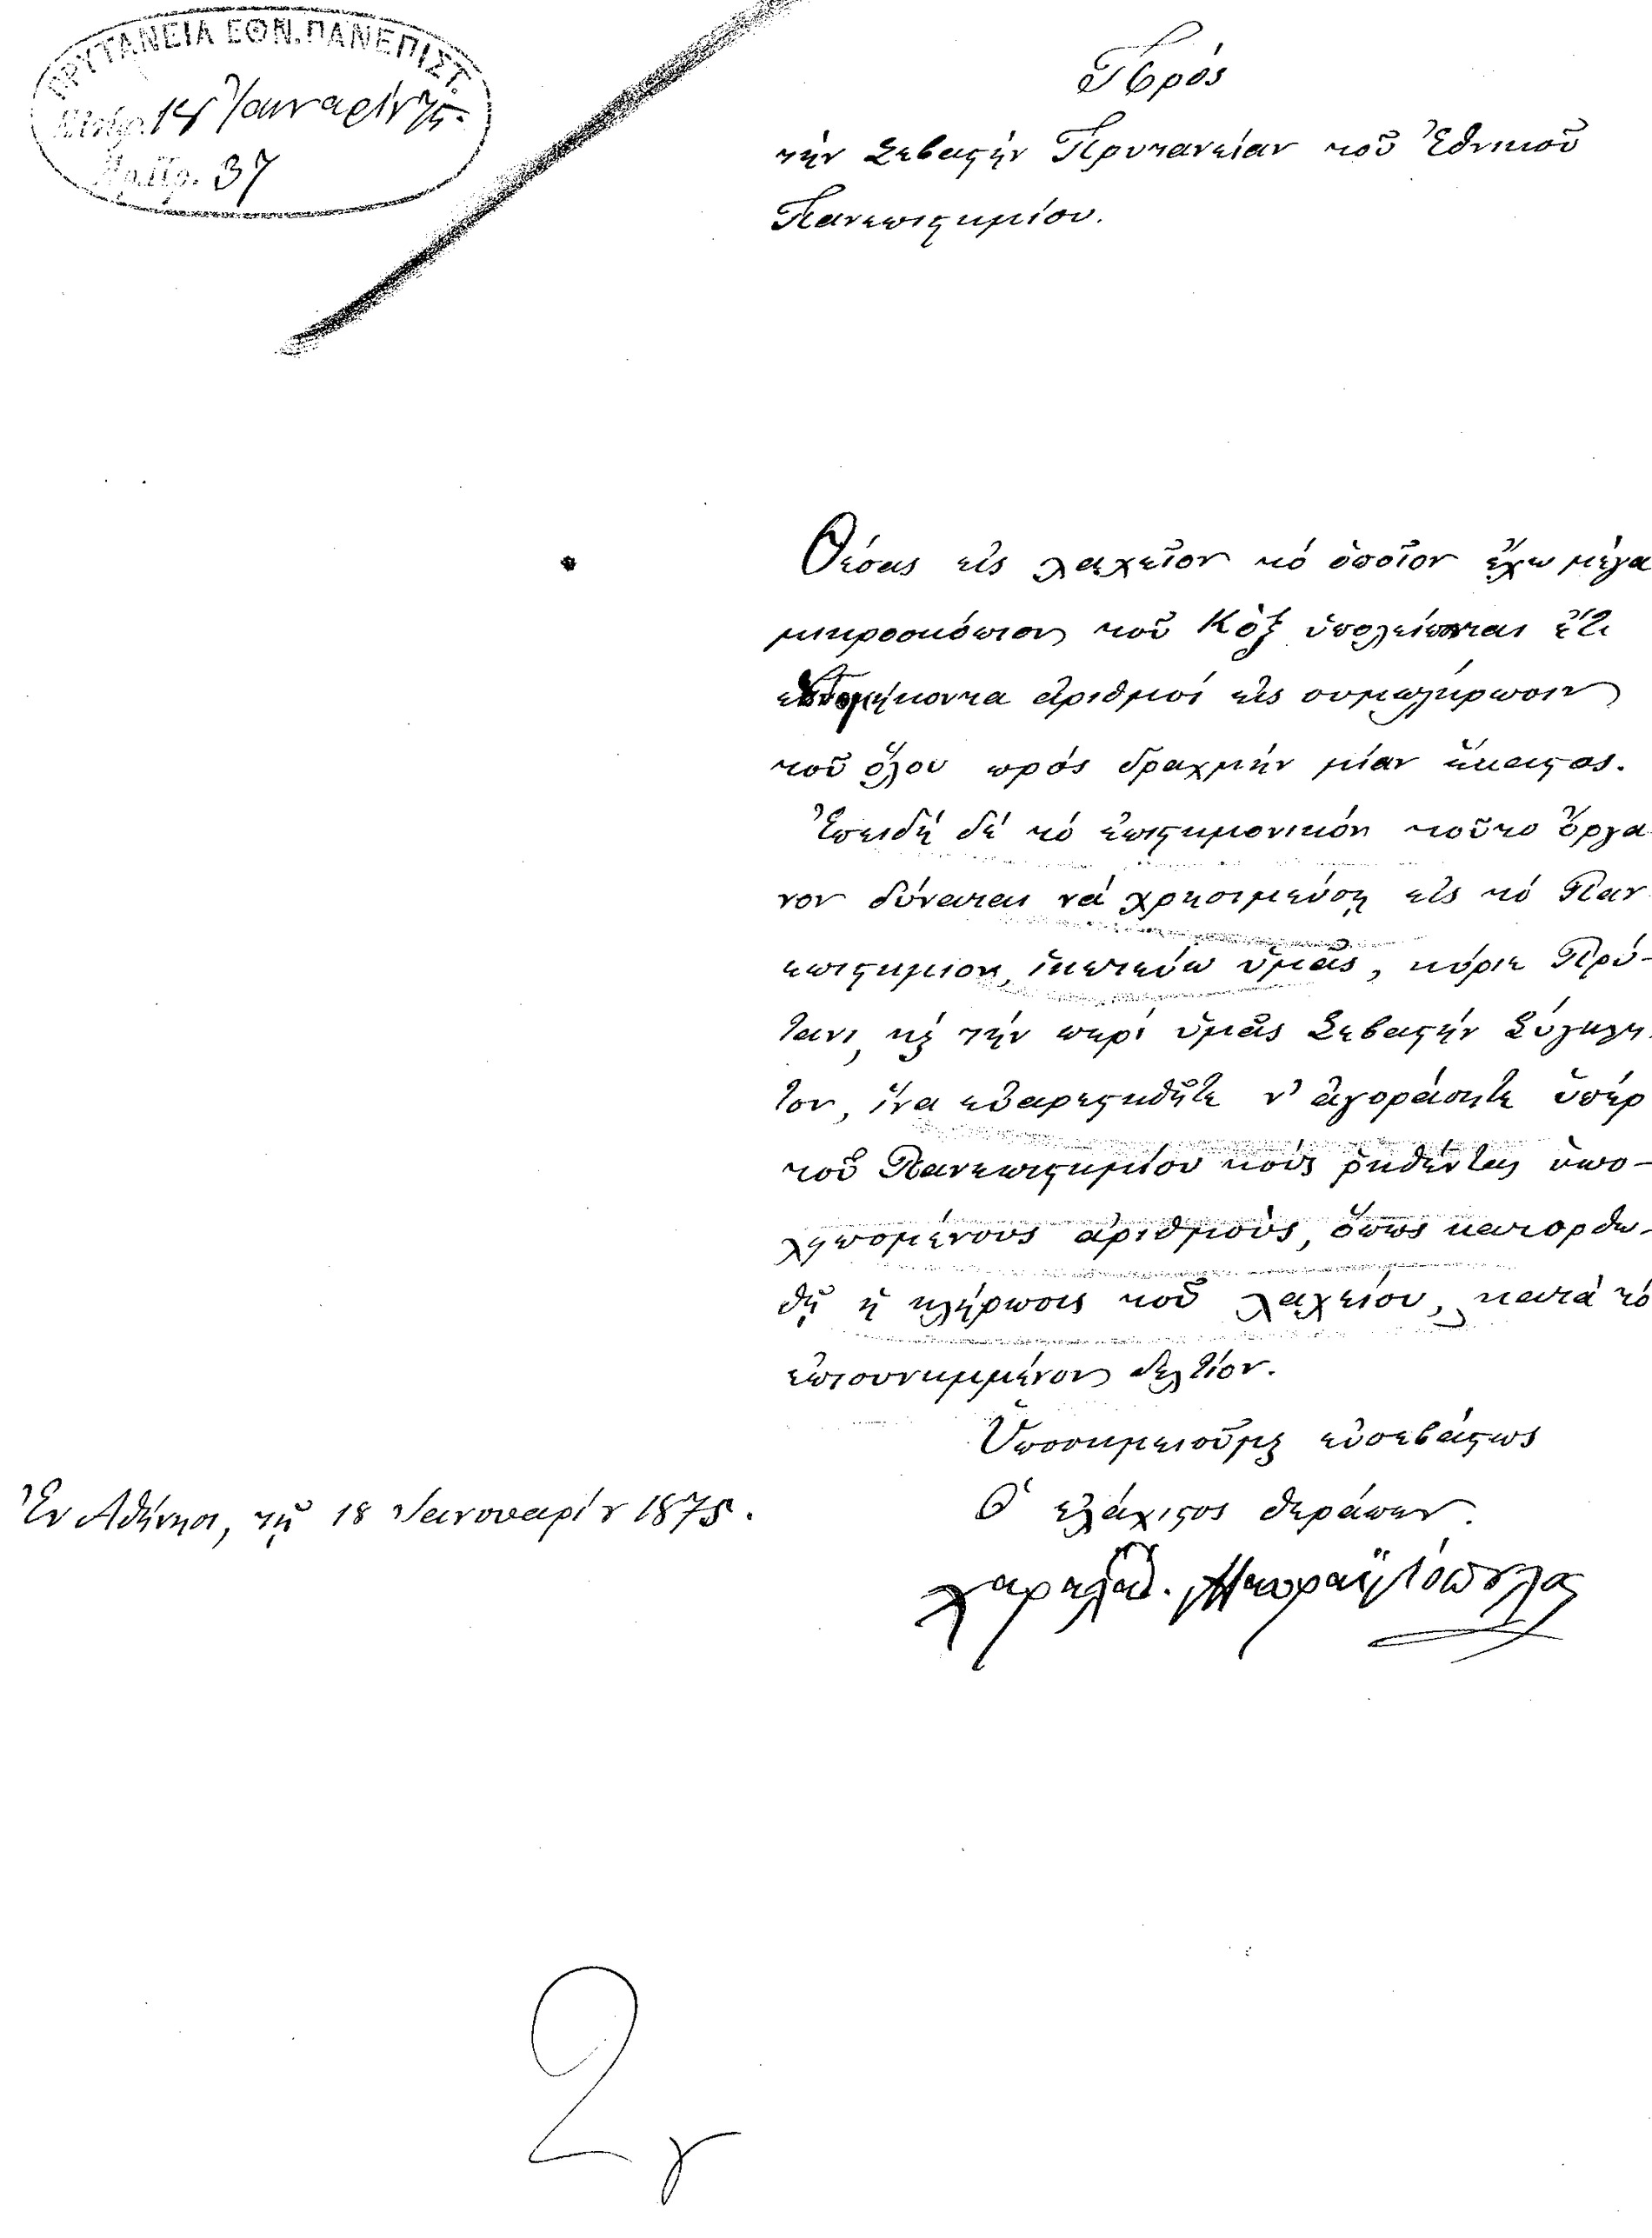 ΠΡΥΤΑΝΕΙΑ ΕΘΝ. ΠΑΝΕΠΙΣΤ.
18 Ἰανουαρίου 75
Ἀρ. Πρ. 37
Πρός
τὴν Σεβαστὴν Πρυτανείαν τοῦ Ἐθνικοῦ
Πανεπιστημίου.
Θέσας εἰς λαχεῖον τό ὁποῖον ἔχω μέγα
μικροσκόπιον τοῦ Κὸξ ὑπολείπονται ἔτι
ἑβδομήκοντα ἀριθμοί εἰς συμπλήρωσιν
τοῦ ὅλου πρός δραχμήν μίαν ἕκαστος.
Ἐπειδή δέ τό ἐπιστημονικόν τοῦτο ὄργα
νον δύναται νά χρησιμεύσῃ εἰς τό Παν
επιστήμιον, ἱκετεύω ὑμᾶς, κύριε Πρύ-
τανι, κ τήν περί ὑμᾶς Σεβαστήν Σύγκλη
τον, ἵνα εὐαρεστηθῆτε ν' ἀγοράσητε ὑπέρ
τοῦ Πανεπιστημίου τούς ῥηθέντας ὑπο-
λειπομένους ἀριθμούς, ὅπως κατορθω-
θῇ ἡ κλήρωσις τοῦ λαχείου, κατά τό
ἐπισυνημμένον δελτίον.
Ὑποσημειοῦμαι εὐσεβάστως
Ὁ ἐλάχιστος θεράπων.
Ἐν Ἀθήνησι, τῇ 18 Ἰανουαρίου 1875.
Χαραλαμ.
2γ